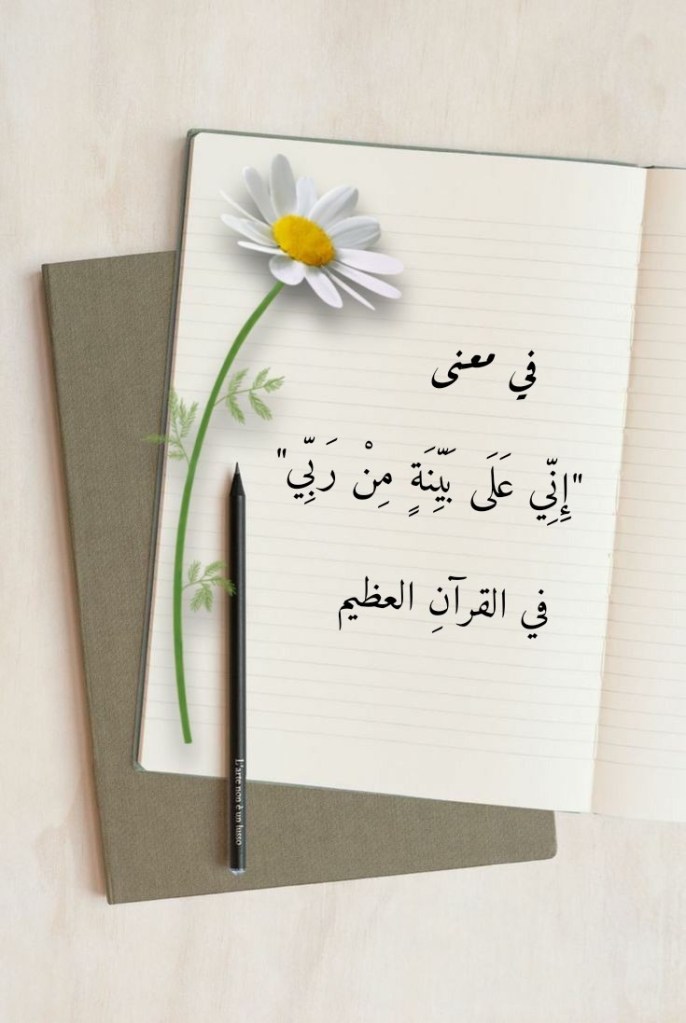 في معنى
"إِنِّي عَلَى بَيِّنَةٍ مِنْ رَبِّي"
في القرآنِ العظيم
L'arte non è un lusso